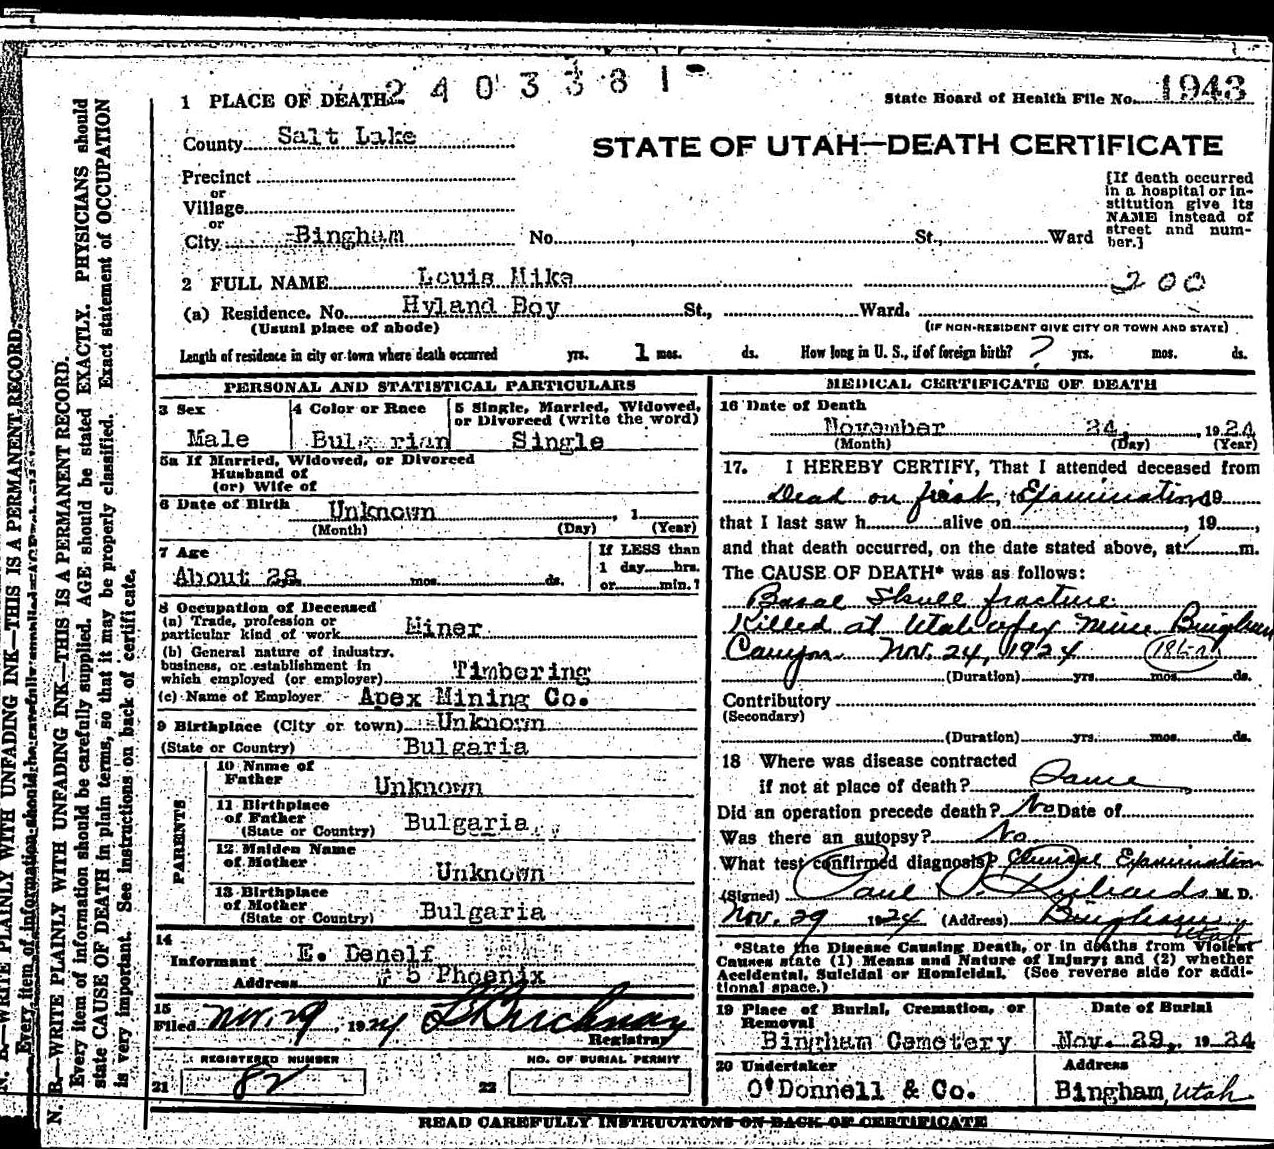 2403381
1 PLACE OF DEATH
State Board of Health File No. 1943
County Salt Lake
STATE OF UTAH—DEATH CERTIFICATE
Precinct
or
Village
or
City Bingham No. St., Ward
[If death occurred
in a hospital or in-
stitution give its
NAME instead of
street and num-
ber.]
2 FULL NAME Louis Mike 200
(a) Residence. No. Hyland Boy St., Ward.
(Usual place of abode) (IF NON-RESIDENT GIVE CITY OR TOWN AND STATE)
Length of residence in city or town where death occurred yrs. 1 mos. ds. How long in U. S., if of foreign birth? ? yrs. mos. ds.
PERSONAL AND STATISTICAL PARTICULARS
3 Sex
Male
4 Color or Race
Bulgarian
5 Single, Married, Widowed,
or Divorced (write the word)
Single
5a If Married, Widowed, or Divorced
Husband of
(or) Wife of
6 Date of Birth Unknown , 1
(Month) (Day) (Year)
7 Age
About 28 yrs. mos. ds.
If LESS than
1 day hrs.
or min.?
8 Occupation of Deceased
(a) Trade, profession or
particular kind of work Miner
(b) General nature of industry,
business, or establishment in
which employed (or employer) Timbering
(c) Name of Employer Apex Mining Co.
9 Birthplace (City or town) Unknown
(State or Country) Bulgaria
PARENTS
10 Name of
Father Unknown
11 Birthplace
of Father
(State or Country) Bulgaria
12 Maiden Name
of Mother Unknown
13 Birthplace
of Mother
(State or Country) Bulgaria
14
Informant E. Deneff
Address # 5 Phoenix
15
Filed Nov. 29, 1924
Registrar
REGISTERED NUMBER
21 82
NO. OF BURIAL PERMIT
22
MEDICAL CERTIFICATE OF DEATH
16 Date of Death
November 24, 1924
(Month) (Day) (Year)
17. I HEREBY CERTIFY, That I attended deceased from
Dead on first, to Examination 19
that I last saw h alive on , 19 ,
and that death occurred, on the date stated above, at m.
The CAUSE OF DEATH* was as follows:
Basal Skull fracture
Killed at Utah apex Mine Bingham
Canyon Nov. 24, 1924
(Duration) yrs. mos. ds.
Contributory
(Secondary)
(Duration) yrs. mos. ds.
18 Where was disease contracted
if not at place of death? Same
Did an operation precede death? No Date of
Was there an autopsy? No
What test confirmed diagnosis? Clinical Examination
(Signed) Paul S. Richards M. D.
Nov. 29 1924 (Address) Bingham, Utah
*State the Disease Causing Death, or in deaths from Violent
Causes state (1) Means and Nature of Injury; and (2) whether
Accidental, Suicidal or Homicidal. (See reverse side for addi-
tional space.)
19 Place of Burial, Cremation, or
Removal
Bingham Cemetery
Date of Burial
Nov. 29, 1924
20 Undertaker
O'Donnell & Co.
Address
Bingham, Utah
READ CAREFULLY INSTRUCTIONS ON BACK OF CERTIFICATE
N. B.—WRITE PLAINLY WITH UNFADING INK—THIS IS A PERMANENT RECORD.
Every item of information should be carefully supplied. AGE should be stated EXACTLY. PHYSICIANS should
state CAUSE OF DEATH in plain terms, so that it may be properly classified. Exact statement of OCCUPATION
is very important. See instructions on back of certificate.